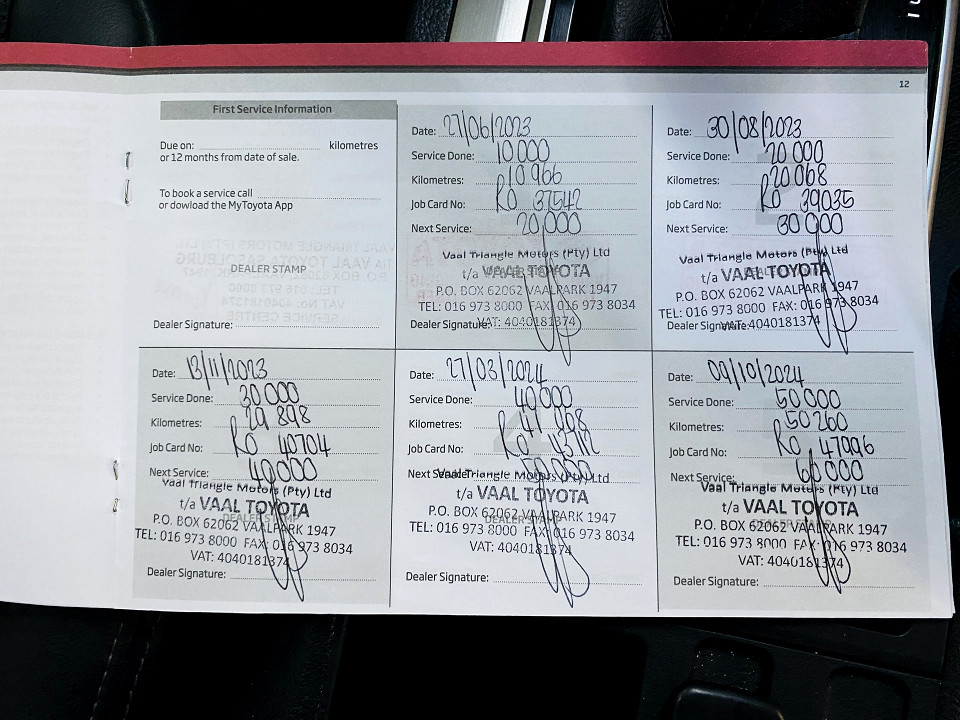 12
First Service Information
Due on: kilometres
or 12 months from date of sale.
To book a service call
or dowload the MyToyota App
DEALER STAMP
Dealer Signature:
Date: 27/06/2023
Service Done: 10 000
Kilometres: 10 966
Job Card No: RO 37542
Next Service: 20,000
Vaal Triangle Motors (Pty) Ltd
t/a VAAL TOYOTA
P.O. BOX 62062 VAALPARK 1947
TEL: 016 973 8000 FAX: 016 973 8034
VAT: 4040181374
Dealer Signature:
Date: 30/08/2023
Service Done: 20 000
Kilometres: 20 068
Job Card No: RO 39035
Next Service: 30 000
Vaal Triangle Motors (Pty) Ltd
t/a VAAL TOYOTA
P.O. BOX 62062 VAALPARK 1947
TEL: 016 973 8000 FAX: 016 973 8034
VAT: 4040181374
Dealer Signature:
Date: 13/11/2023
Service Done: 30 000
Kilometres: 29 898
Job Card No: RO 40704
Next Service: 40 000
Vaal Triangle Motors (Pty) Ltd
t/a VAAL TOYOTA
P.O. BOX 62062 VAALPARK 1947
TEL: 016 973 8000 FAX: 016 973 8034
VAT: 4040181374
Dealer Signature:
Date: 27/03/2024
Service Done: 40 000
Kilometres:
Job Card No: RO
Next Service: 50 000
Vaal Triangle Motors (Pty) Ltd
t/a VAAL TOYOTA
P.O. BOX 62062 VAALPARK 1947
TEL: 016 973 8000 FAX: 016 973 8034
VAT: 4040181374
Dealer Signature:
Date: 09/10/2024
Service Done: 50 000
Kilometres: 50 260
Job Card No: RO 47996
Next Service: 60 000
Vaal Triangle Motors (Pty) Ltd
t/a VAAL TOYOTA
P.O. BOX 62062 VAALPARK 1947
TEL: 016 973 8000 FAX: 016 973 8034
VAT: 4040181374
Dealer Signature: